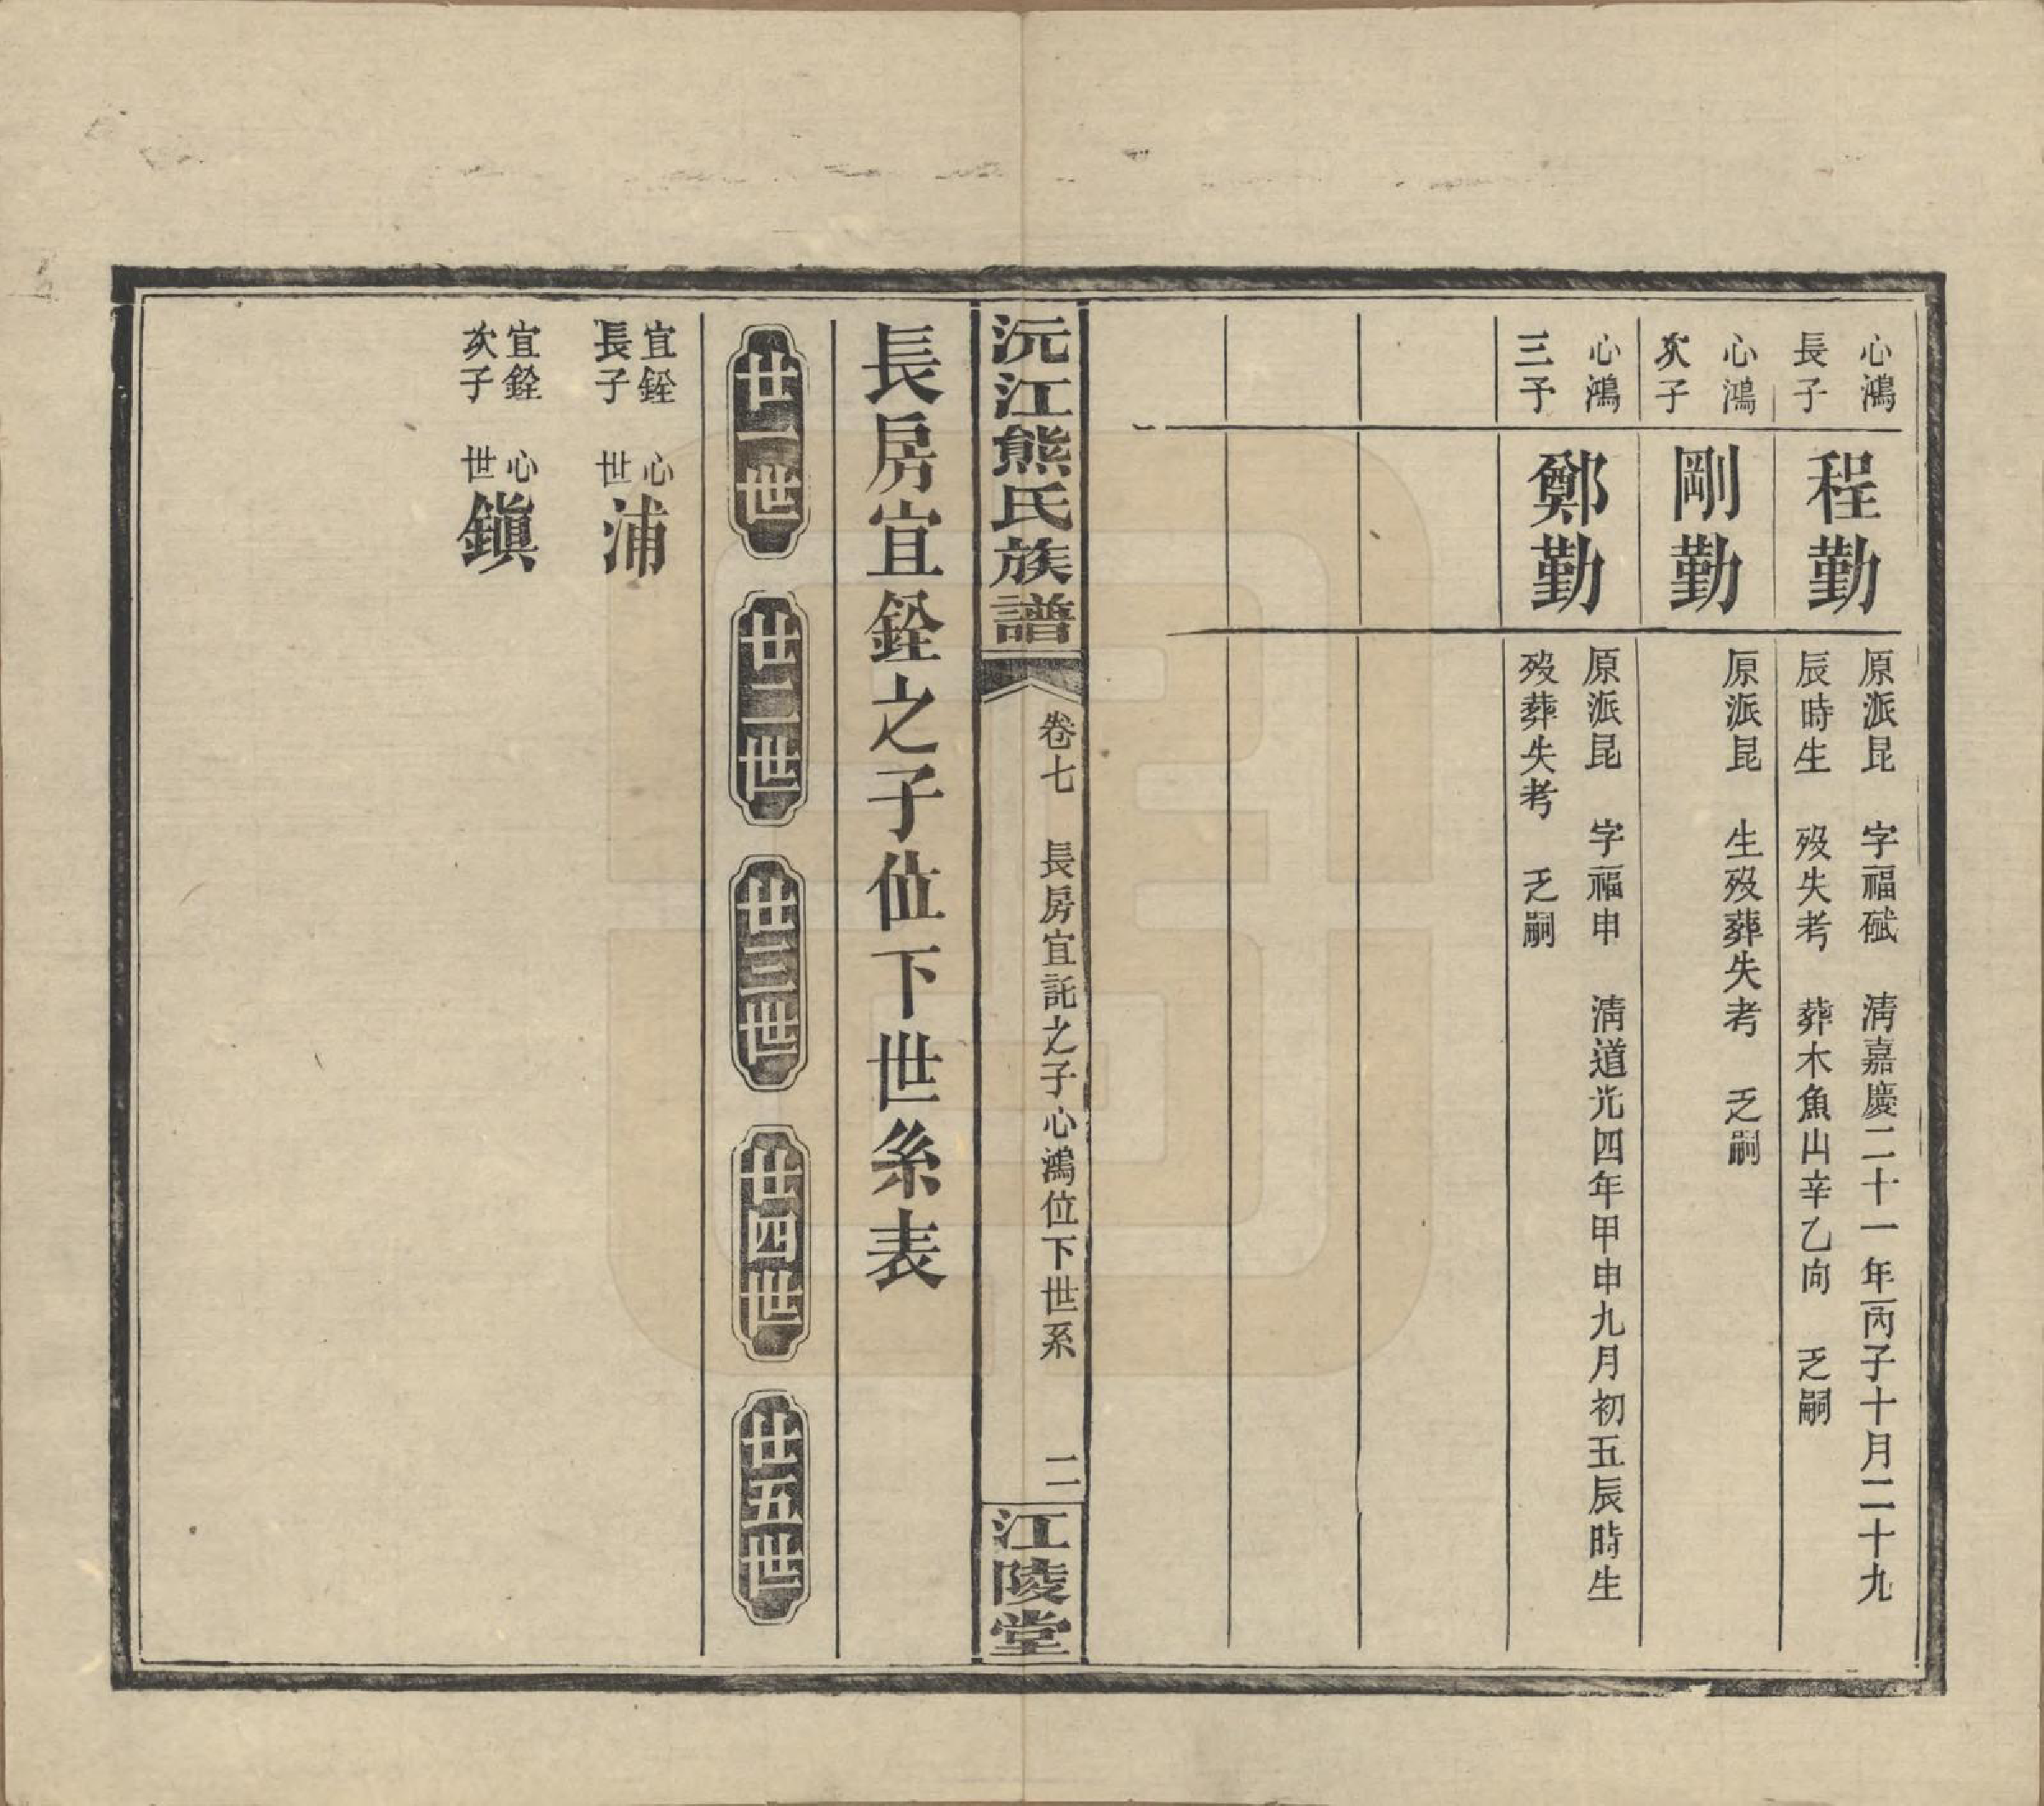 心鴻
長子
程勤
原派昆　字福碔　淸嘉慶二十一年丙子十月二十九
辰時生　歿失考　葬木魚山辛乙向　乏嗣
心鴻
次子
剛勤
原派昆　生歿葬失考　乏嗣
心鴻
三子
鄭勤
原派昆　字福申　淸道光四年甲申九月初五辰時生
歿葬失考　乏嗣
沅江熊氏族譜
卷七　長房宜託之子心鴻位下世系　二
江陵堂
長房宜銓之子位下世系表
廿一世
廿二世
廿三世
廿四世
廿五世
宜銓
長子
心
世
浦
宜銓
次子
心
世
鎭